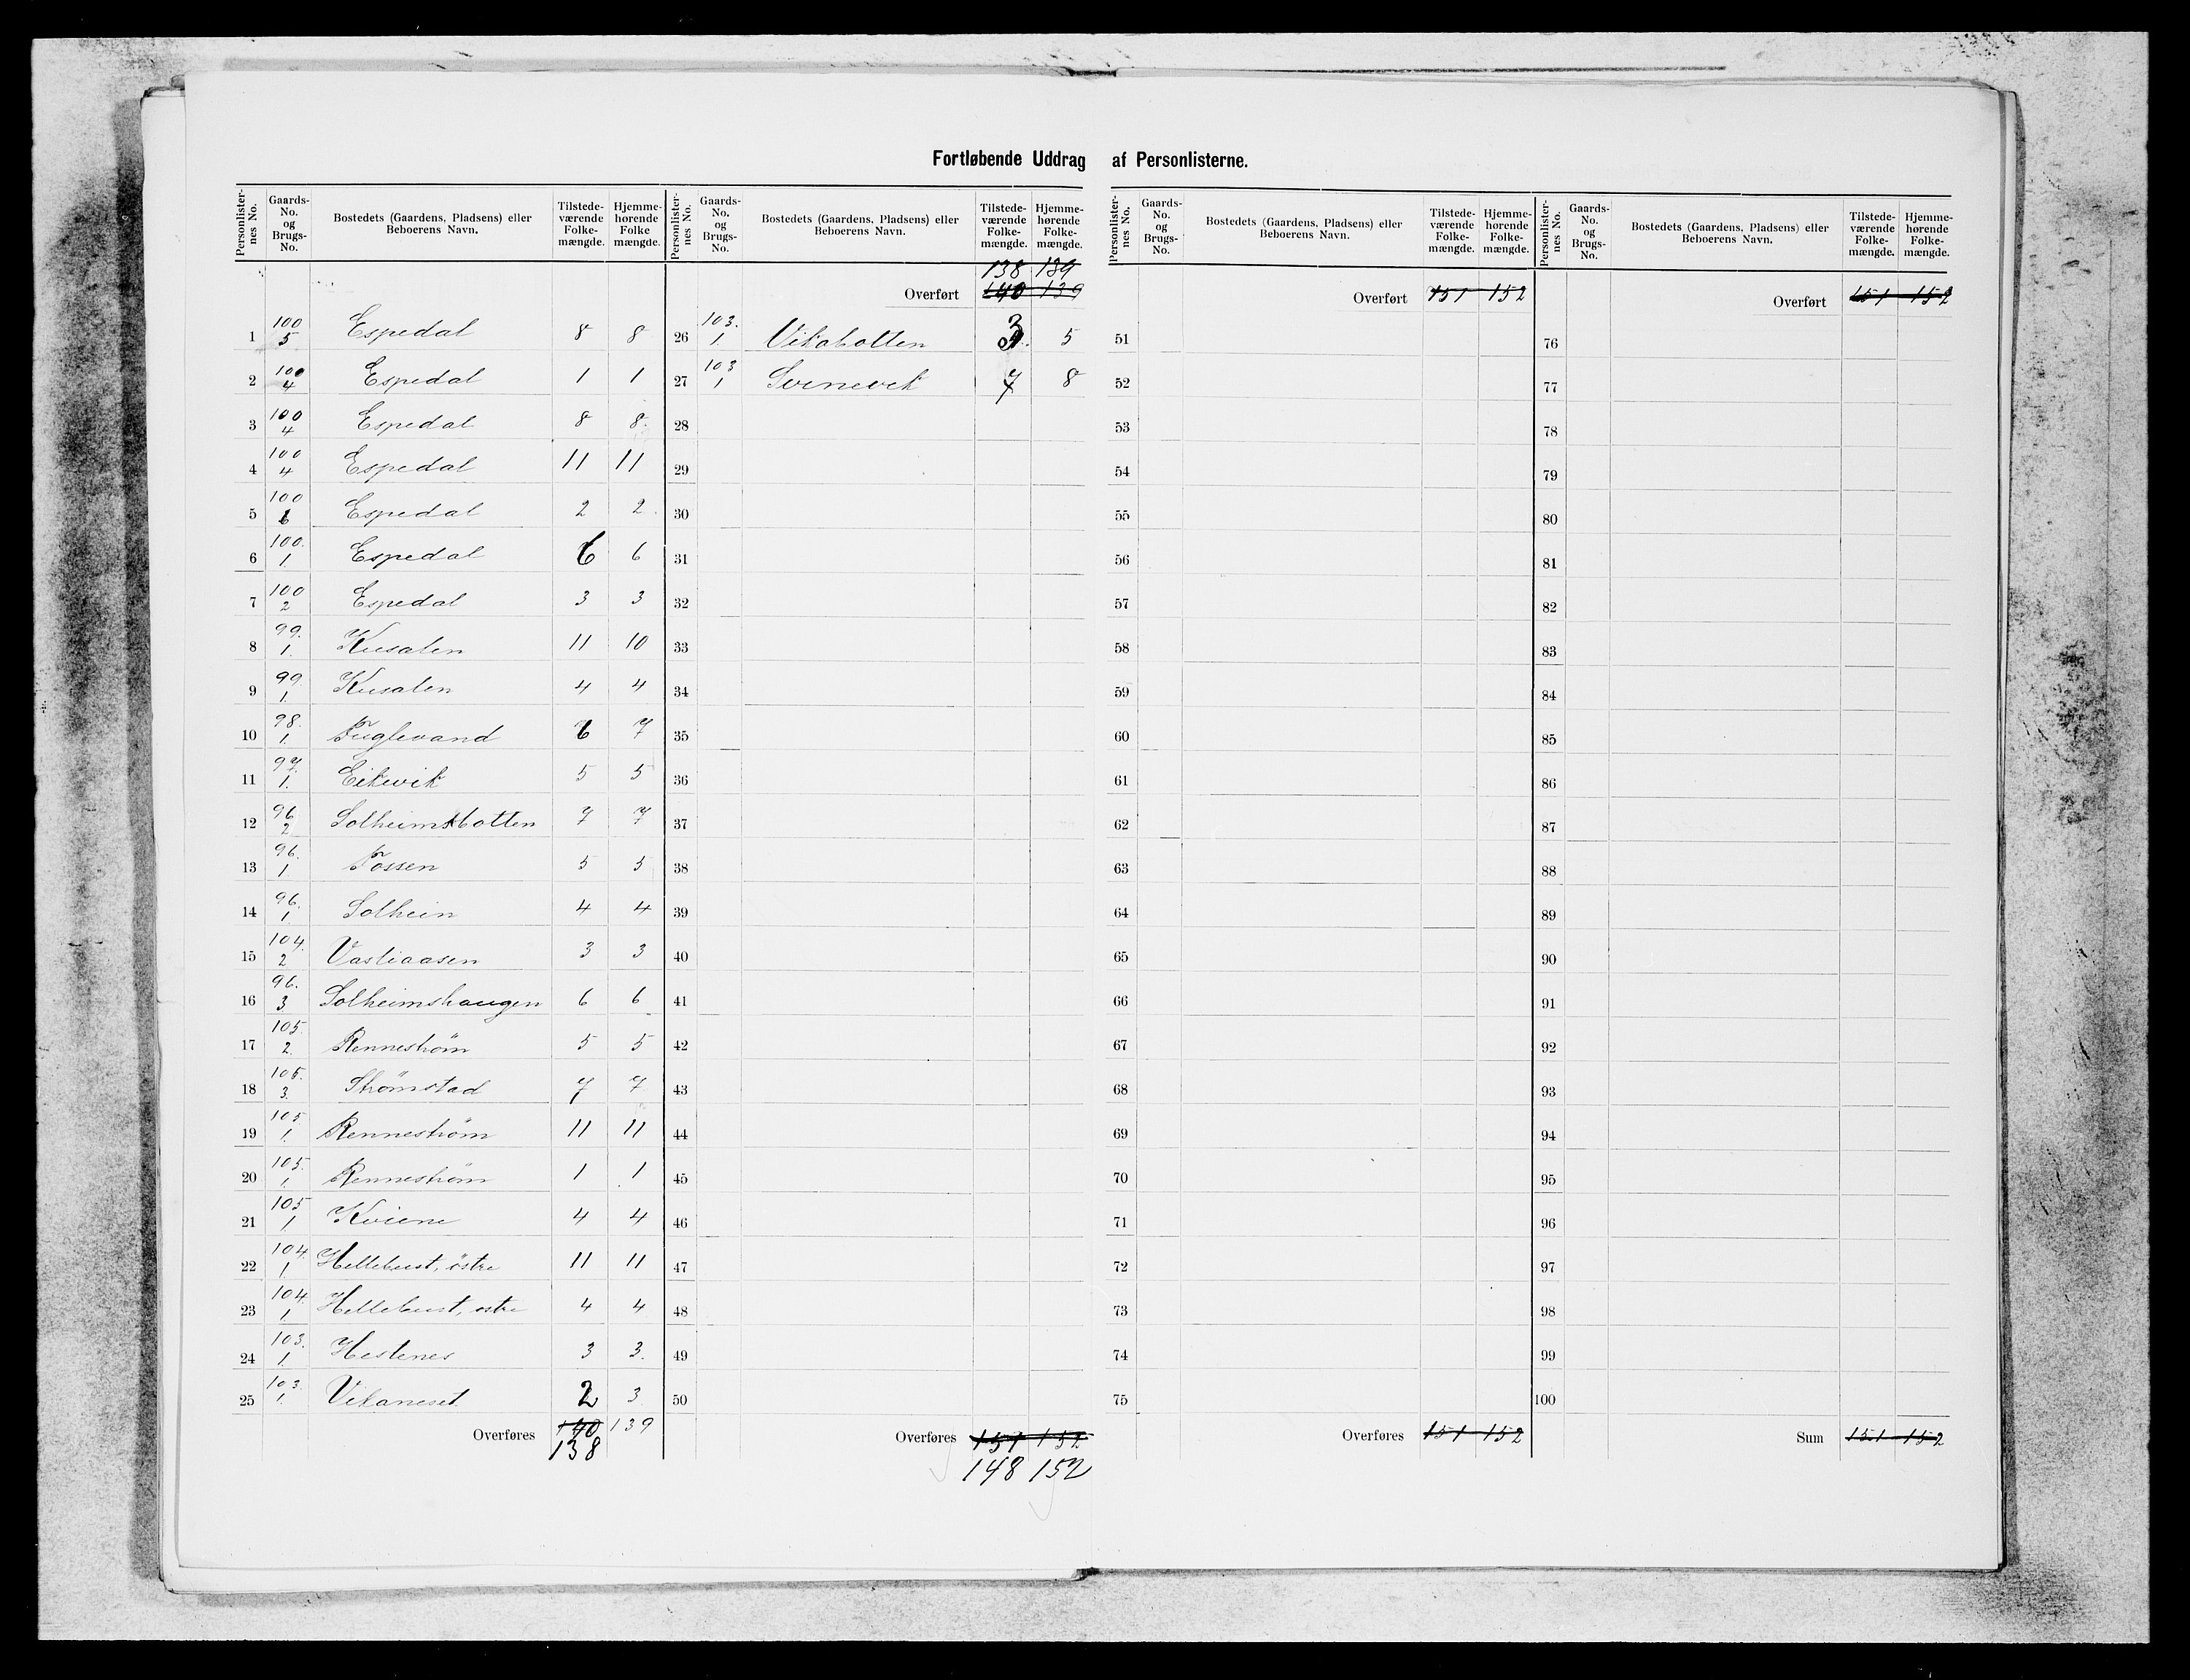 Fortløbende Uddrag af Personlisterne.
Personlisternes No. | Gaards-No. og Brugs-No. | Bostedets (Gaardens, Pladsens) eller Beboerens Navn. | Tilstedeværende Folkemængde. | Hjemmehørende Folkemængde.
1 | 100 5 | Espedal | 8 | 8
2 | 100 4 | Espedal | 1 | 1
3 | 100 4 | Espedal | 8 | 8
4 | 100 4 | Espedal | 11 | 11
5 | 100 6 | Espedal | 2 | 2
6 | 100. 1 | Espedal | 6 | 6
7 | 100 2 | Espedal | 3 | 3
8 | 99. 1. | Kusalen | 11 | 10
9 | 99. 1. | Kusalen | 4 | 4
10 | 98. 1. | Fuglevand | 6 | 7
11 | 97. 1. | Eikevik | 5 | 5
12 | 96 2 | Solheimsbotten | 7 | 7
13 | 96. 1 | Fossen | 5 | 5
14 | 96. 1 | Solheim | 4 | 4
15 | 104. 2 | Vasliaasen | 3 | 3
16 | 96. 3 | Solheimshaugen | 6 | 6
17 | 105. 2. | Rennestrøm | 5 | 5
18 | 105. 3. | Strømstad | 7 | 7
19 | 105. 1. | Rennestrøm | 11 | 11
20 | 105. 1. | Rennestrøm | 1 | 1
21 | 105 1 | Kviene | 4 | 4
22 | 104. 1. | Hellebust, östre | 11 | 11
23 | 104. 1 | Hellebust, östre | 4 | 4
24 | 103. 1. | Hestenes | 3 | 3.
25 | 103. 1. | Vikaneset | 2 | 3
Overføres 140 139
138
Personlisternes No. | Gaards-No. og Brugs-No. | Bostedets (Gaardens, Pladsens) eller Beboerens Navn. | Tilstedeværende Folkemængde. | Hjemmehørende Folkemængde.
138 139
Overført 140 139
26 | 103. 1. | Vikabotten | 3 | 5
27 | 103 1 | Svinevik | 7 | 8
28
29
30
31
32
33
34
35
36
37
38
39
40
41
42
43
44
45
46
47
48
49
50
Overføres 151 152
148 152
Personlisternes No. | Gaards-No. og Brugs-No. | Bostedets (Gaardens, Pladsens) eller Beboerens Navn. | Tilstedeværende Folkemængde. | Hjemmehørende Folkemængde.
Overført 151 152
51
52
53
54
55
56
57
58
59
60
61
62
63
64
65
66
67
68
69
70
71
72
73
74
75
Overføres 151 152
Personlisternes No. | Gaards-No. og Brugs-No. | Bostedets (Gaardens, Pladsens) eller Beboerens Navn. | Tilstedeværende Folkemængde. | Hjemmehørende Folkemængde.
Overført 151 152
76
77
78
79
80
81
82
83
84
85
86
87
88
89
90
91
92
93
94
95
96
97
98
99
100
Sum 151 152